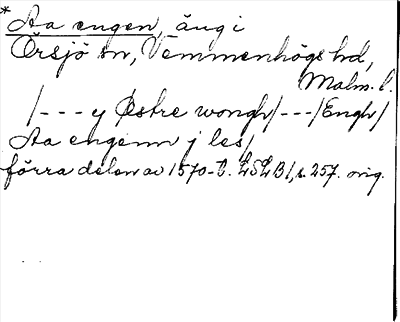 * Aa engen, äng i
Örsjö sn, Vemmenhögs hd,
Malm. l.
/--- y Østre wongh/---/Engh/
Aa engenn j les/
förra delen av 1570-t. LSLB 1, s. 257. orig.